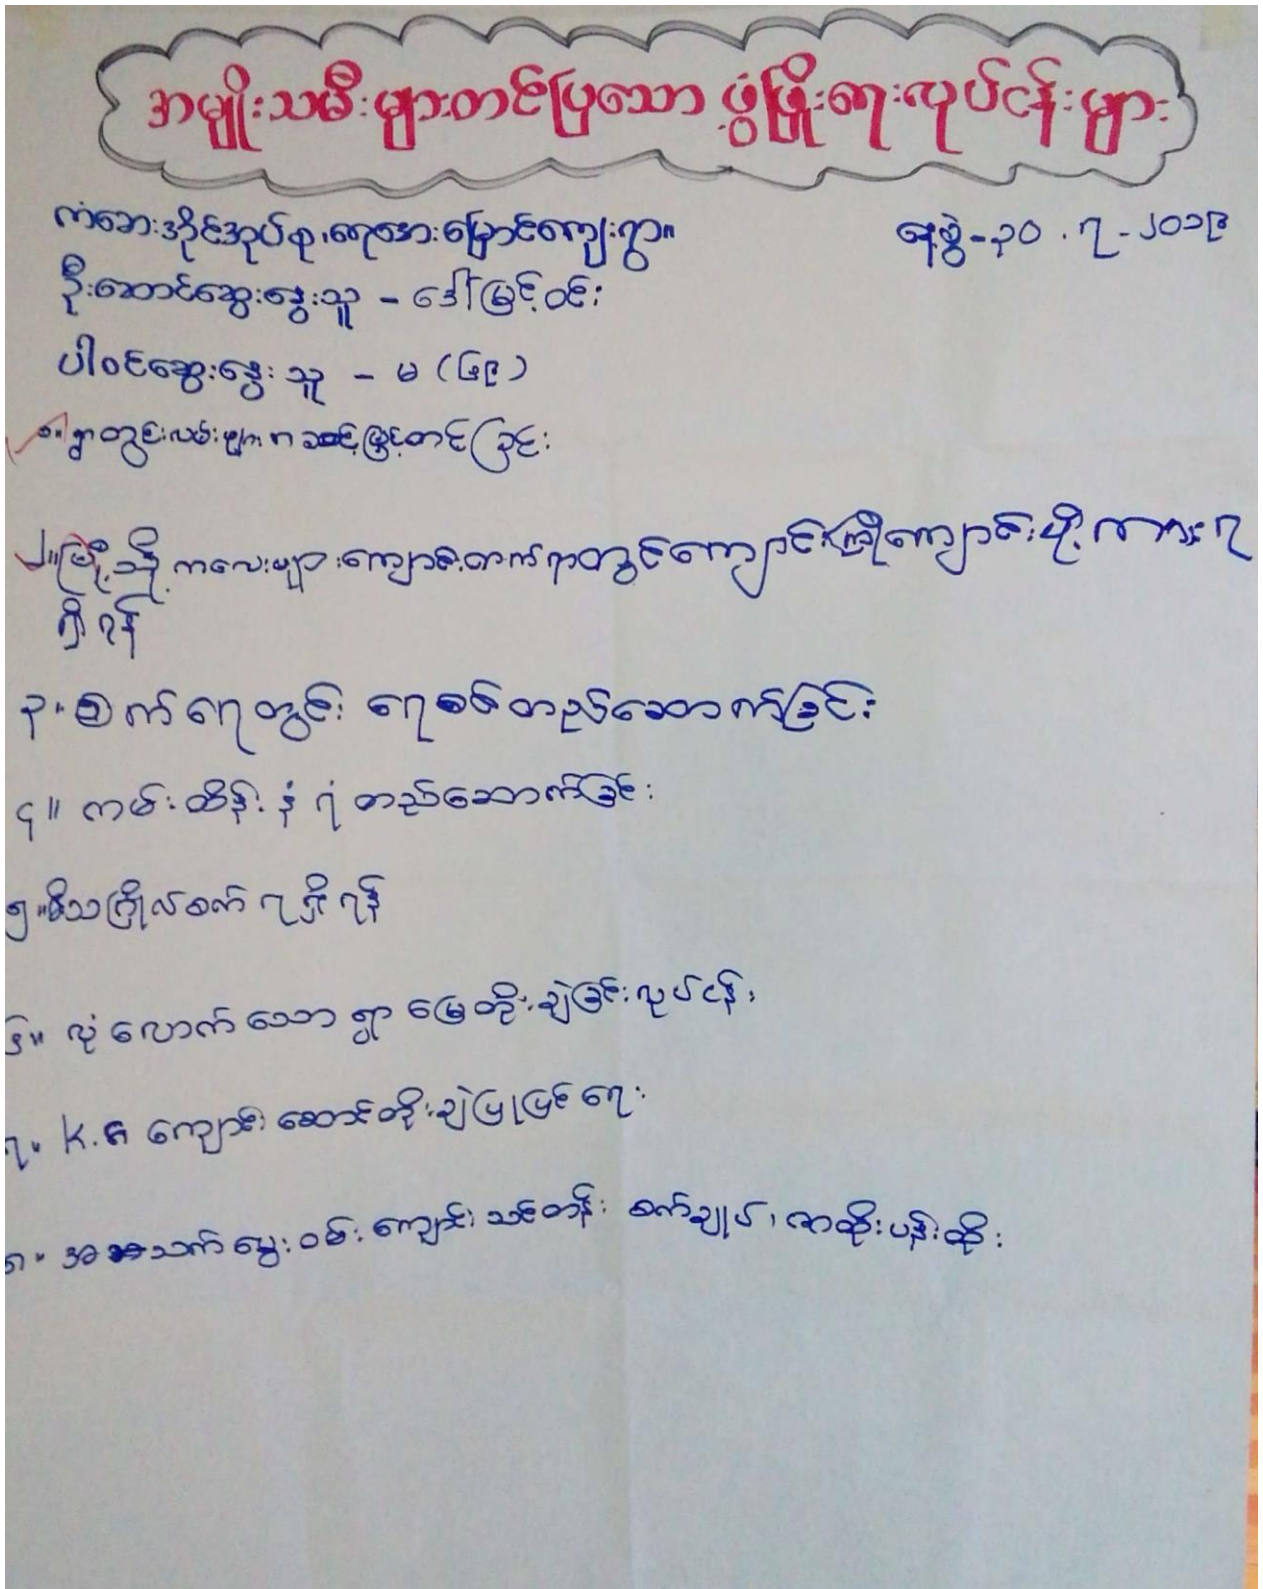 အမျိုးသမီးများတင်ပြသော ဖွံ့ဖြိုးရေးလုပ်ငန်းများ
ကံဆေးအိုင်အုပ်စု၊ရေအေးမြောင်ကျေးရွာ။ နေ့စွဲ-၃၀.၇-၂၀၁၉
ဦးဆောင်ဆွေးနွေးသူ - ဒေါ်မြင့်ဝင်း
ပါဝင်ဆွေးနွေးသူ - မ (၆၉)
၁။ ရွာတွင်းလမ်းများအဆင့်မြှင့်တင်ခြင်း
၂။မြို့သို့ကလေးများကျောင်းတက်ရာတွင်ကျောင်းကြိုကျောင်းပို့ကားရ
ရှိရန်
၃။ စက်ရေတွင်း ရေစင်တည်ဆောက်ခြင်း
၄။ ကမ်းထိန်းနံရံတည်ဆောက်ခြင်း
၅။စီသကြိုလ်စက်ရရှိရန်
၆။ လုံလောက်သော ရွာမြေတိုးချဲ့ခြင်းလုပ်ငန်း
၇။ K.G ကျောင်းဆောင်တိုးချဲ့ပြုပြင်ရေး
၈။ အသက်မွေးဝမ်းကျောင်းသင်တန်း စက်ချုပ်၊ဇာထိုးပန်းထိုး